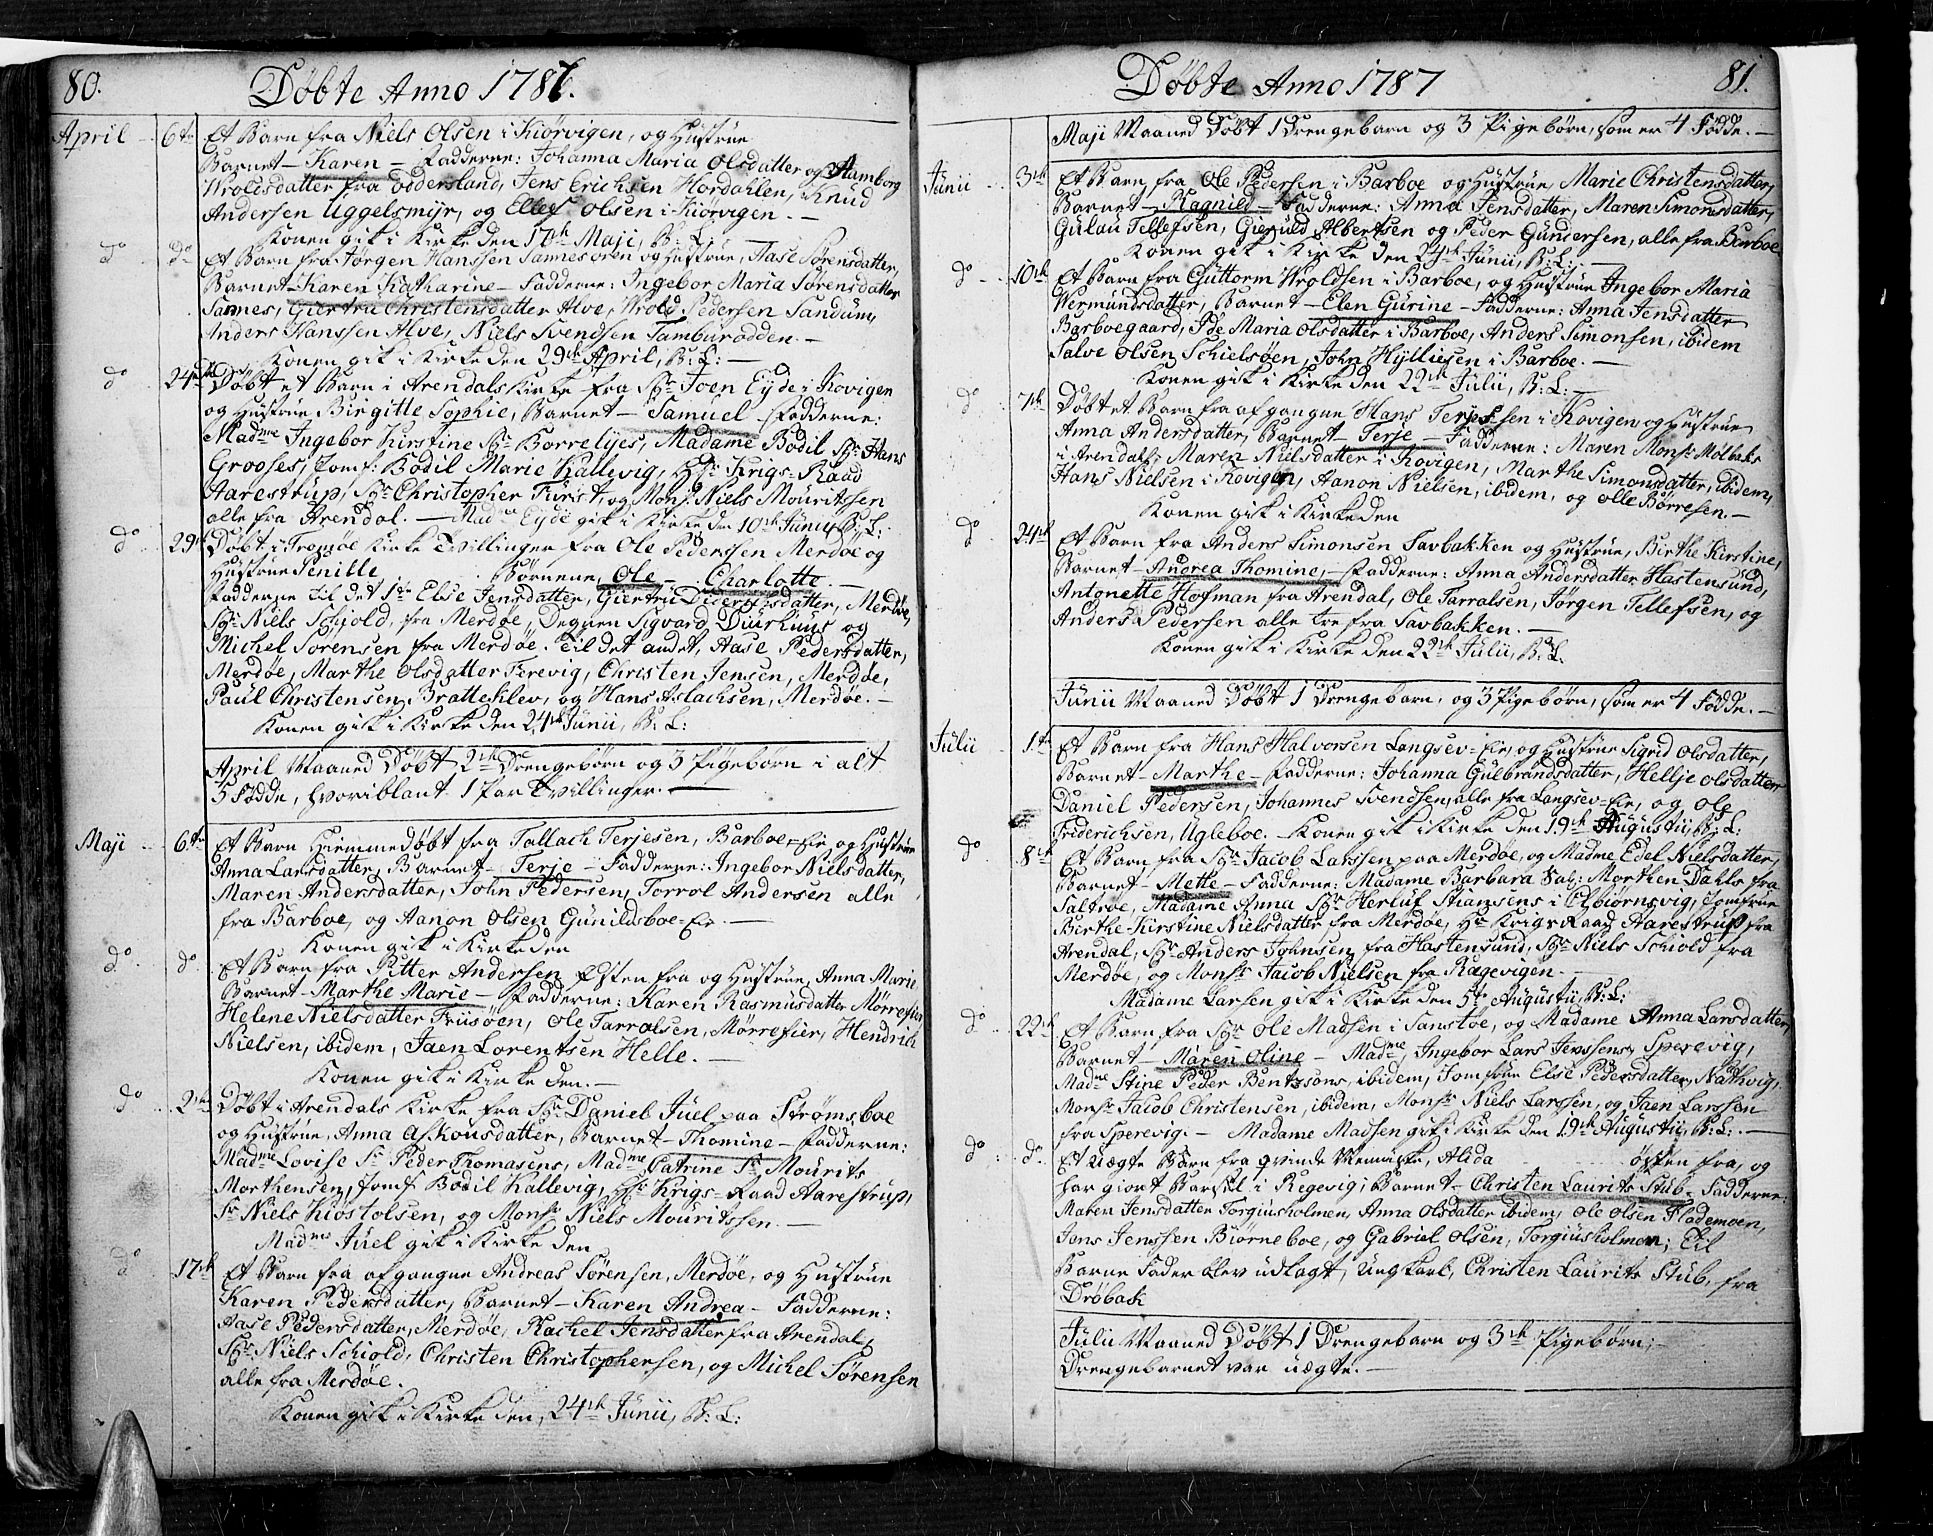 80.
Døbte Anno 1787.
April 6te Et Barn fra Niels Olsen i Kiørvigen, og Hustrue
Barnet - Karen - Fadderne: Johanna Maria Olsdatter og Hamborg
Wroldsdatter fra Foddersland, Jens Erichsen Hordahlen, Knud
Andersen Uggelsmyr, og Ellef Olsen i Kiørvigen. -
Konen gik i Kirke den 17th Maji, B: L: -
do do Et Barn fra Jørgen Hanssen Sannesoren og Hustrue, Aase Sørensdatter,
Barnet - Karen Katharine - Fadderne: Ingebor Maria Sørensdatter
Sannes, Giertru Christensdatter Alve, Wrold Pedersen Sandum,
Anders Hanssen Alve, Niels Svendsen Tamburodden. -
Konen gik i Kirke den 29th April, B: L: -
do 24th Døbt et Barn i Arendals Kirke fra Sr Joen Eyde i Kovigen
og Hustrue Birgitte Sophie, Barnet - Samuel - Fadderne:
Madme Ingebor Kirstine Sr Borrelyes, Madame Bodil Sr Hans
Grooses, Jomf: Bodil Marie Kallevig, Hr Krigs-Raad
Aarestrup, Sr Christopher Fürst, og Monsr Niels Mouritssen
alle fra Arendal. - Madme Eyde gik i Kirke den 10th Junii B: L:
do 29th Døbt i Tromøe Kirke Tvillinger fra Ole Pederssen Merdøe og
Hustrue Penille Børnene, Ole - Charlotte. -
Fadderne til det 1te Else Jensdatter, Giertru Diderichsdatter, Merdøe,
Sr Niels Schiold, fra Merdøe, Degnen Sigvard Duurhuus og
Michel Sørensen fra Merdøe. Til det andet, Aase Pedersdatter,
Merdøe, Marthe Olsdatter Ferevig, Christen Jensen, Merdøe,
Paul Christensen, Bratteklev, og Hans Aslachsen, Merdøe. -
Konen gik i Kirke den 24th Junii, B: L:
April Maaned Døbt 2de Drengebørn og 3 Pigebørn i alt
5 Fødde, hvoriblant 1 Par Tvillinger. -
Maji 6te Et Barn hiemmedøbt fra Tallach Terjesen, Barboe-Eie og Hustrue
Anna Larsdatter, Barnet - Terje - Fadderne: Ingebor Nielsdatter,
Maren Andersdatter, John Pedersen, Torrol Andersen alle
fra Barboe, og Aanon Olsen Gunildsboe-Eie. -
Konen gik i Kirke den
do do Et Barn fra Pitter Andersen Østen fra og Hustrue, Anna Marie
Barnet - Marthe Marie - Fadderne: Karen Rasmusdatter Mørrefier
Helene Nielsdatter Friisøen, Ole Tarralsen, Mørrefier, Hendrik
Nielsen, ibidem, Jaen Lorentsen Helle. -
Konen gik i Kirke den. -
do 2den Døbt i Arendals Kirke fra Sr Daniel Juel paa Strømsboe
og Hustrue, Anna Askousdatter, Barnet - Thomine - Fadderne:
Madme Lovise Sr Peder Thomasens, Madme Catrine Sr Mourits
Morthensen, Jomf. Bodil Kallevig, Hr Krigs-Raad Aarestrup,
Sr Niels Kiøstolsen, og Monsr Niels Mouritssen. -
Madme Juel gik i Kirke den
do 17th Et Barn fra afgangne Andreas Sørensen, Merdøe, og Hustrue
Karen Pedersdatter, Barnet - Karen Andrea - Fadderne:
Aase Pedersdatter, Merdøe, Rachel Jensdatter fra Arendal,
Sr Niels Schiold, Christen Christophersen, og Michel Sørensen
alle fra Merdøe.
Konen gik i Kirke den, 24th Junii, B: L:
81.
Døbte Anno 1787
Maji Maaned Døbt 1 Drengebarn og 3 Pigebørn, som er 4 Fødde. -
Junii 3th Et Barn fra Ole Pedersen i Barboe og Hustrue, Marie Christensdatter,
Barnet - Ragnild - Fadderne: Anna Jensdatter, Maren Simonsdatter,
Gulau Tellefsen, Gieruld Albertsen og Peder Gundersen, alle fra Barboe
Konen gik i Kirke den 24th Junii, B: L: -
do 10th Et Barn fra Guttorm Wroldsen i Barboe, og Hustrue Ingebor Maria
Wermundsdatter, Barnet - Elen Gurine - Fadderne: Anna Jensdatter
Barboegaard, Ide Maria Olsdatter i Barboe, Anders Simonsen, ibidem
Salve Olsen Schielsøen, John Hylliesen i Barboe. -
Konen gik i Kirke den 22th Julii, B: L: -
do 7th Døbt et Barn fra afgangne Hans Terjessen i Kovigen og Hustrue
Anna Andersdatter, Barnet - Terje - Fadderne: Maren Monsr Mølbaks
i Arendal, Maren Nielsdatter i Kovigen, Marthe Simonsdatter, ibidem,
Hans Nielsen i Kovigen, Aanon Nielsen, ibidem, og Olle Børresen. -
Konen gik i Kirke den
do 24th Et Barn fra Anders Simonsen Savbakken og Hustrue, Birthe Kirstine,
Barnet - Andrea Thomine, - Fadderne: Anna Andersdatter Hastensund,
Antonette Hofman fra Arendal, Ole Tarralsen, Jørgen Tellefsen, og
Anders Pedersen alle tre fra Savbakken. -
Konen gik i Kirke den 22th Julii, B: L:
Junii Maaned Døbt 1 Drengebarn, og 3 Pigebørn, som er 4 Fødde. -
Julii 1te Et Barn fra Hans Halvorsen Langsev-Eie, og Hustrue Sigrid Olsdatter,
Barnet - Marthe - Fadderne: Johanna Gulbrandsdatter, Hellje Olsdatter
Daniel Pedersen, Johannes Svendsen, alle fra Langsev-Eie, og Ole
Friderichsen, Ugleboe. Konen gik i Kirke den 19th Augustii, B: L:
do 8th Et Barn fra Sr Jacob Larssen paa Merdøe, og Madme Edel Nielsdatter,
Barnet - Mette - Fadderne: Madame Barbara Sal: Morthen Dahls fra
Saltrøe, Madame Anna Sr Herluf Stiansens i Elbiørnsvig, Jomfrue
Birthe Kirstine Nielsdatter fra Merdøe, Hr Krigs Raad Aarestrup fra
Arendal, Sr Anders Johnsen fra Hastensund, Sr Niels Schiold fra
Merdøe, og Monsr Jacob Nielsen fra Rægevigen. -
Madame Larsen gik i Kirke den 5te Augustii, B: L:
do 22th Et Barn fra Sr Ole Madsen i Sanstøe, og Madame Anna Larsdatter,
Barnet - Maren Oline - Madme, Ingebor Lars Jenssens Sperevig,
Madme Stine Peder Bentzsøns, ibidem, Jomfrue Else Pedersdatter, Nathvig,
Monsr Jacob Christensen, ibidem, Monsr Niels Larssen, og Jaen Larssen
fra Sperevig. - Madame Madsen gik i Kirke den 19th Augustii, B: L: -
do do. Et Uægte Barn fra Qvinde Menniske, Alida østen fra, og
har giort Barsel i Regevig; Barnet - Christen Laurits Stub - Fadderne:
Maren Jensdatter Torgiusholmen, Anna Olsdatter ibidem, Ole Olsen Flademoen,
Jons Jenssen Biørneboe, og Gabriel Olsen, Torgiusholmen; Til
Barne Fader blev udlagt, Ungkarl, Christen Laurits Stub, fra
Drøbak
Julii Maaned Døbt 1 Drengebarn og 3de Pigebørn; -
Drengebarnet var uægte. -